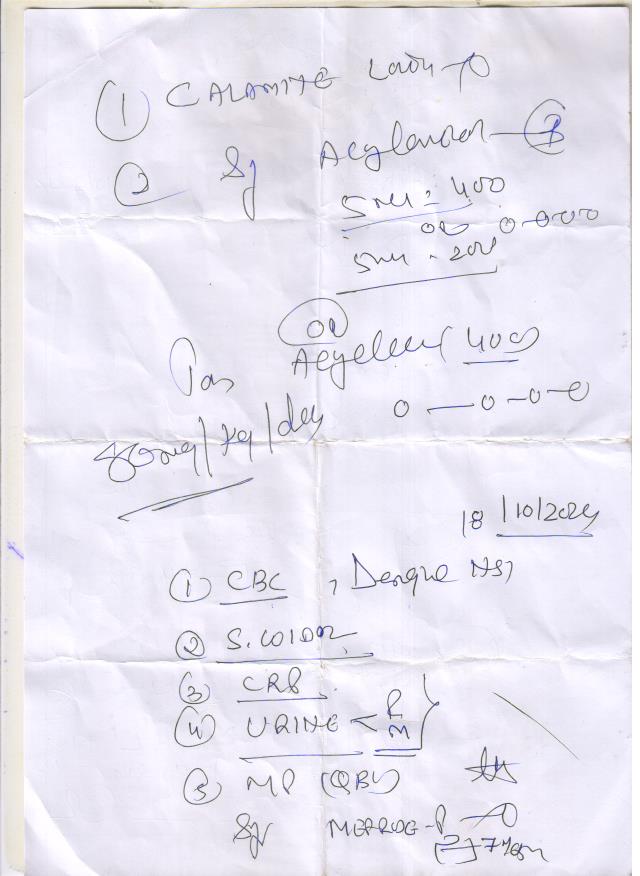 ① CALAMINE Lotion
② Sy Acyclovir
5ml = 400
or
5ml = 200
or
Tas Acyclovir (400)
80mg/kg/day
18/10/2024
① CBC, Dengue NS1
② S. WIDAL
③ CRP
④ URINE < R M }
⑤ MP (QBC)
Sy MEFROG-P